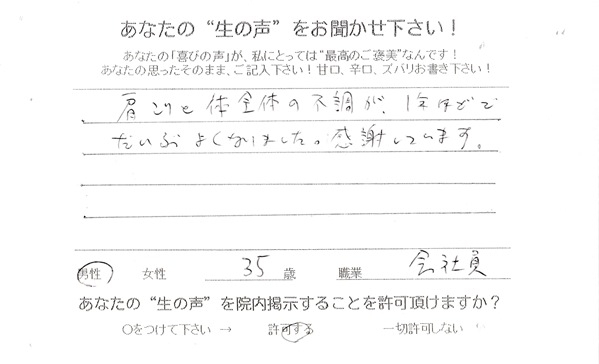 あなたの“生の声”をお聞かせ下さい！
あなたの「喜びの声」が、私にとっては“最高のご褒美”なんです！
あなたの思ったそのまま、ご記入下さい！甘口、辛口、ズバリお書き下さい！
肩こりと体全体の不調が、1年ほどで
だいぶよくなりました。感謝しています。
男性　女性　35歳　職業　会社員
あなたの“生の声”を院内掲示することを許可頂けますか？
〇をつけて下さい → 許可する　一切許可しない